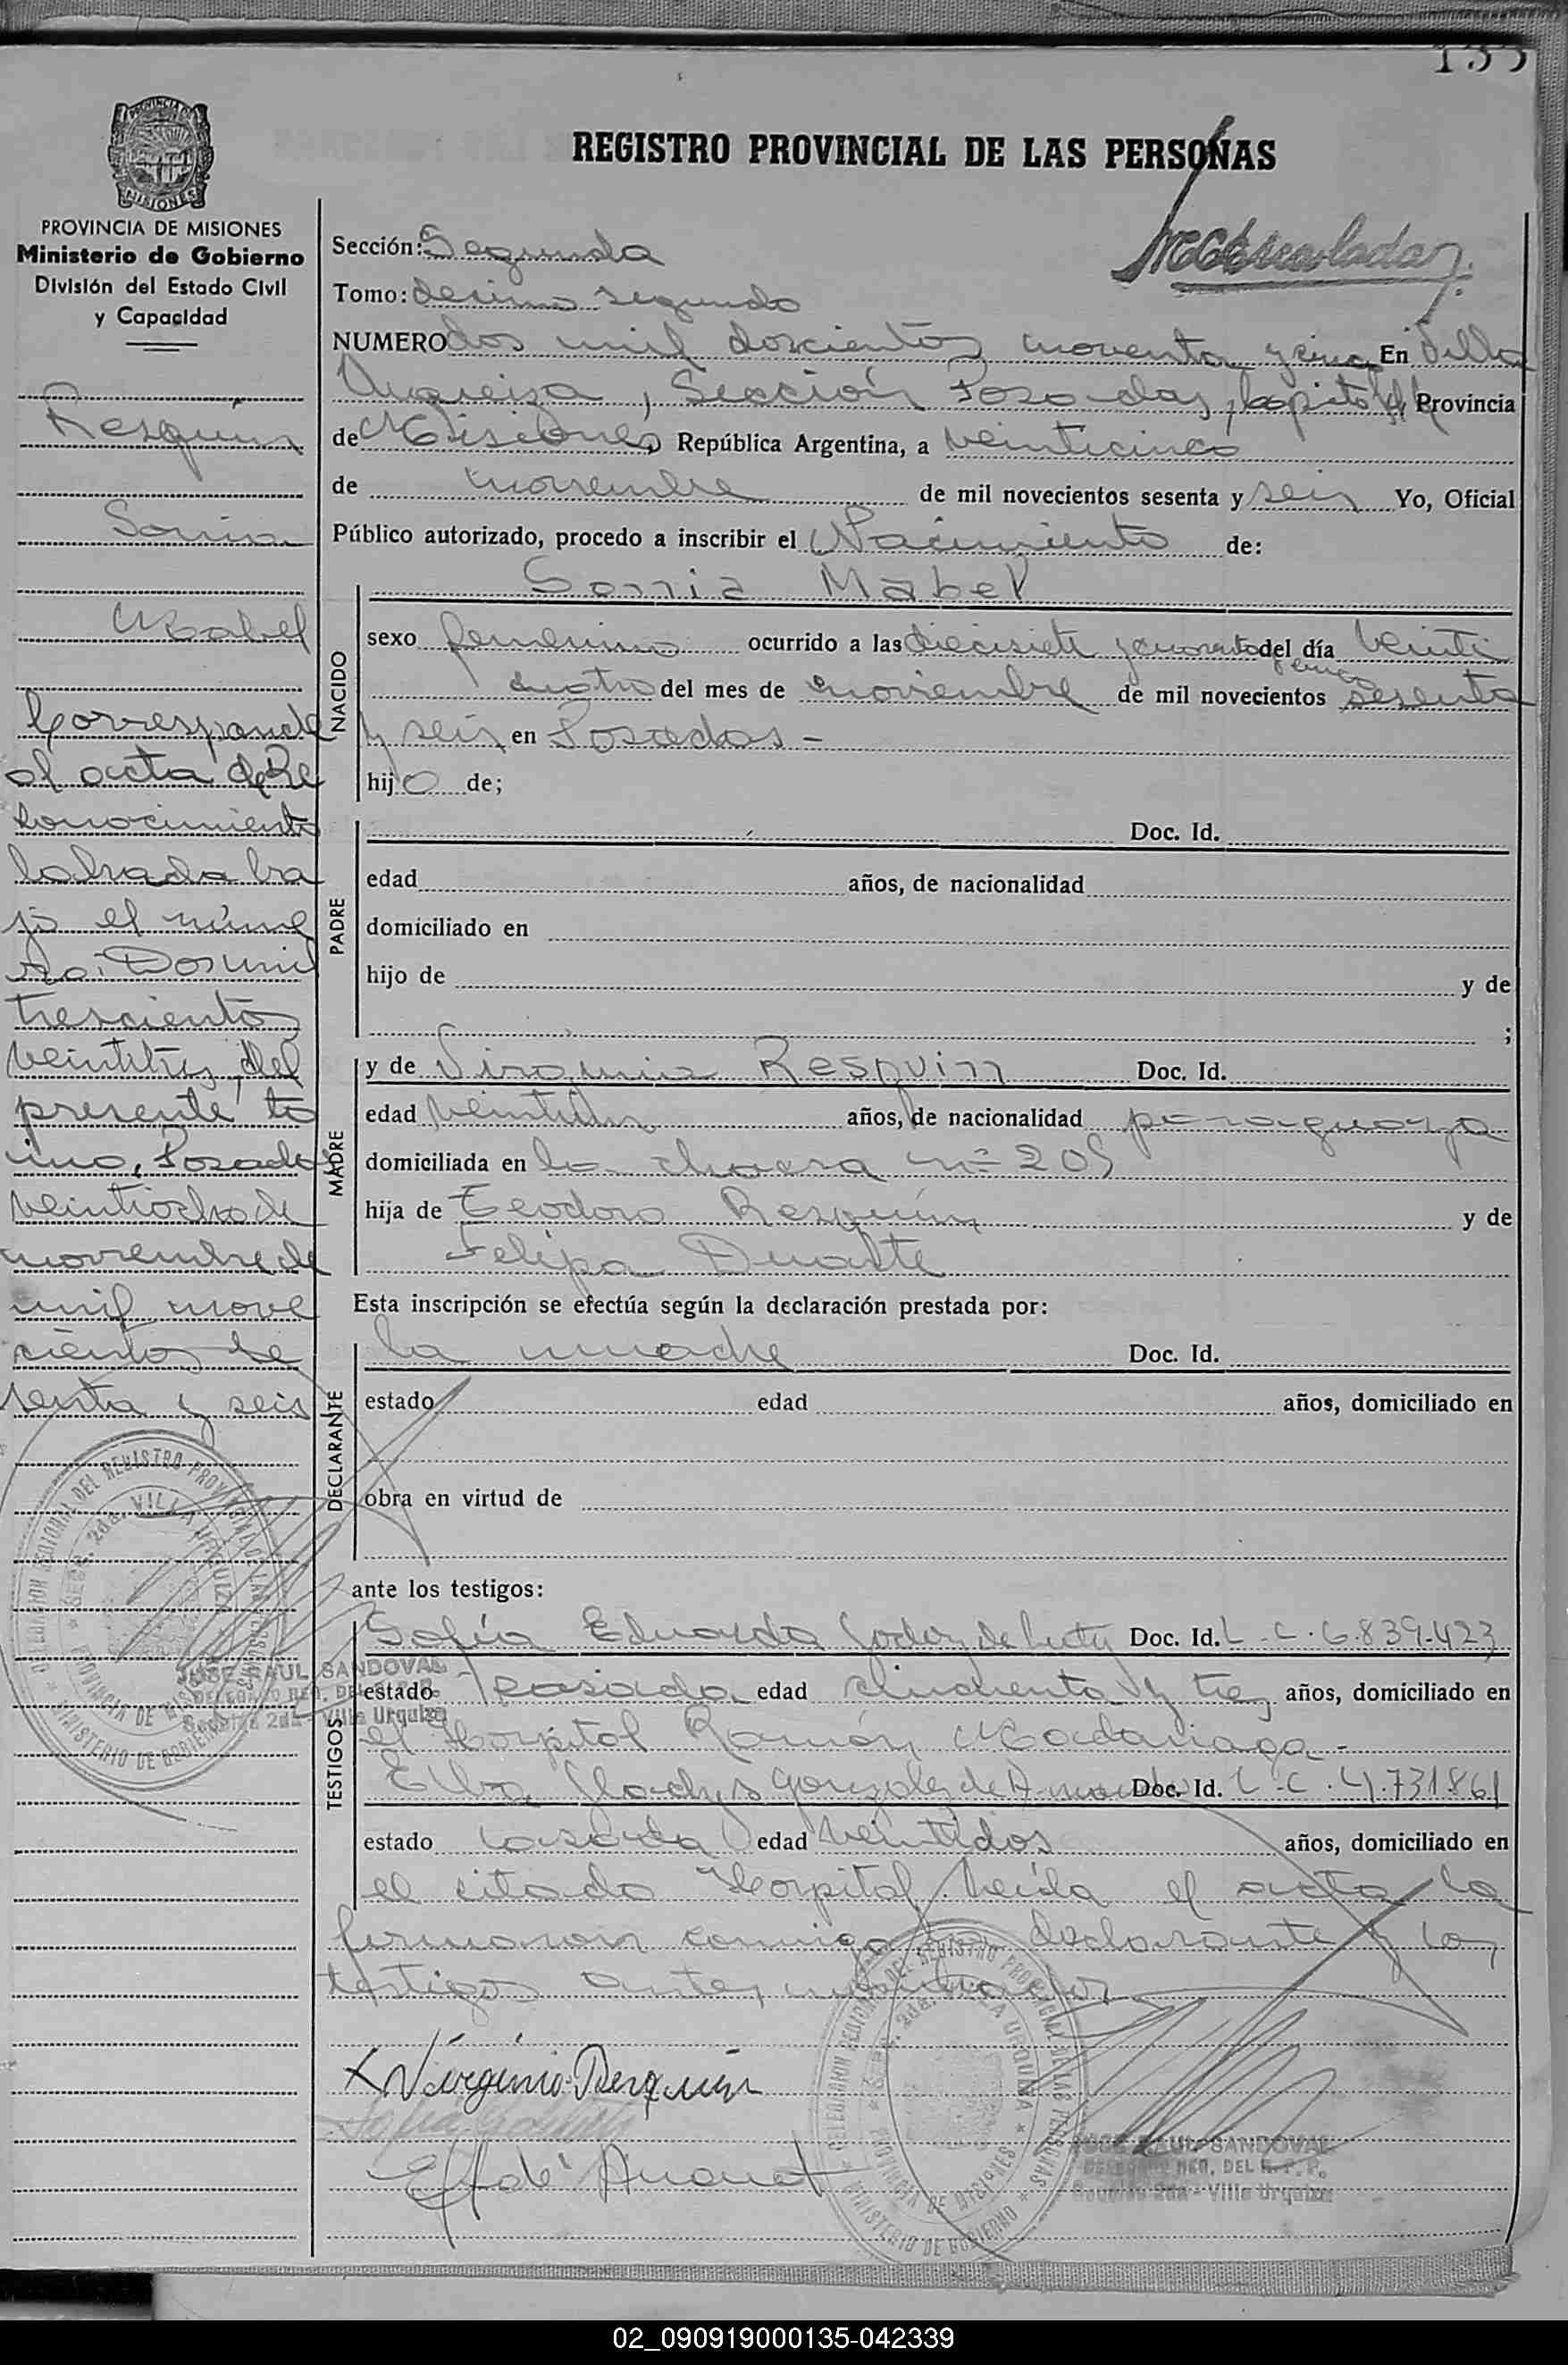 135
REGISTRO PROVINCIAL DE LAS PERSONAS
PROVINCIA DE MISIONES
Ministerio de Gobierno
División del Estado Civil
y Capacidad
Resquin
Sonia
Mabel
Corresponde
al acta de Re
conocimiento
labrada ba
jo el núme
ro: Dos mil
trescientos
veintitres, del
presente to
mo, Posadas
veintiocho de
noviembre de
mil nove
cientos se
senta y seis
Sección: Segunda
Tomo: decimo segundo
NUMERO dos mil doscientos noventa y cinco En Villa
Urquiza, Sección Posadas, Capital, Provincia
de Misiones, República Argentina, a veinticinco
de noviembre de mil novecientos sesenta y seis Yo, Oficial
Público autorizado, procedo a inscribir el Nacimiento de:
Sonia Mabel
NACIDO
sexo femenino ocurrido a las diecisiete y cuarenta del día veinti
cuatro del mes de noviembre de mil novecientos sesenta
y seis en Posadas -
hijo de;
PADRE
Doc. Id.
edad años, de nacionalidad
domiciliado en
hijo de y de
;
MADRE
y de Virginia Resquin Doc. Id.
edad años, de nacionalidad paraguaya
domiciliada en la chacra nº 205
hija de Teodoro Resquín y de
Felipa Duarte
Esta inscripción se efectúa según la declaración prestada por:
DECLARANTE
la madre Doc. Id.
estado edad años, domiciliado en
obra en virtud de
ante los testigos:
TESTIGOS
Sofía Eduarda Godoy de Doc. Id. L.C. 6.839.423
estado casada edad cincuenta y tres años, domiciliado en
el Hospital Ramón Madariaga -
Elba Gladys Gonzalez de Doc. Id. L.C. 4.731861
estado casada edad veintidos años, domiciliado en
el citado Hospital. Leída el acta la
firmaron conmigo la declarante y los
testigos antes
x Virginia Resquin
DELEGACION REGIONAL DEL REGISTRO PROVINCIAL DE LAS PERSONAS
SECC. 2da. VILLA URQUIZA
PROVINCIA DE MISIONES
MINISTERIO DE GOBIERNO
JOSE RAUL SANDOVAL
DELEGADO REG. DEL R. P. P.
Sección 2da - Villa Urquiza
DELEGACION REGIONAL DEL REGISTRO PROVINCIAL DE LAS PERSONAS
SECC. 2da. VILLA URQUIZA
PROVINCIA DE MISIONES
MINISTERIO DE GOBIERNO
JOSE RAUL SANDOVAL
DELEGADO REG. DEL R. P. P.
Sección 2da - Villa Urquiza
02_090919000135-042339